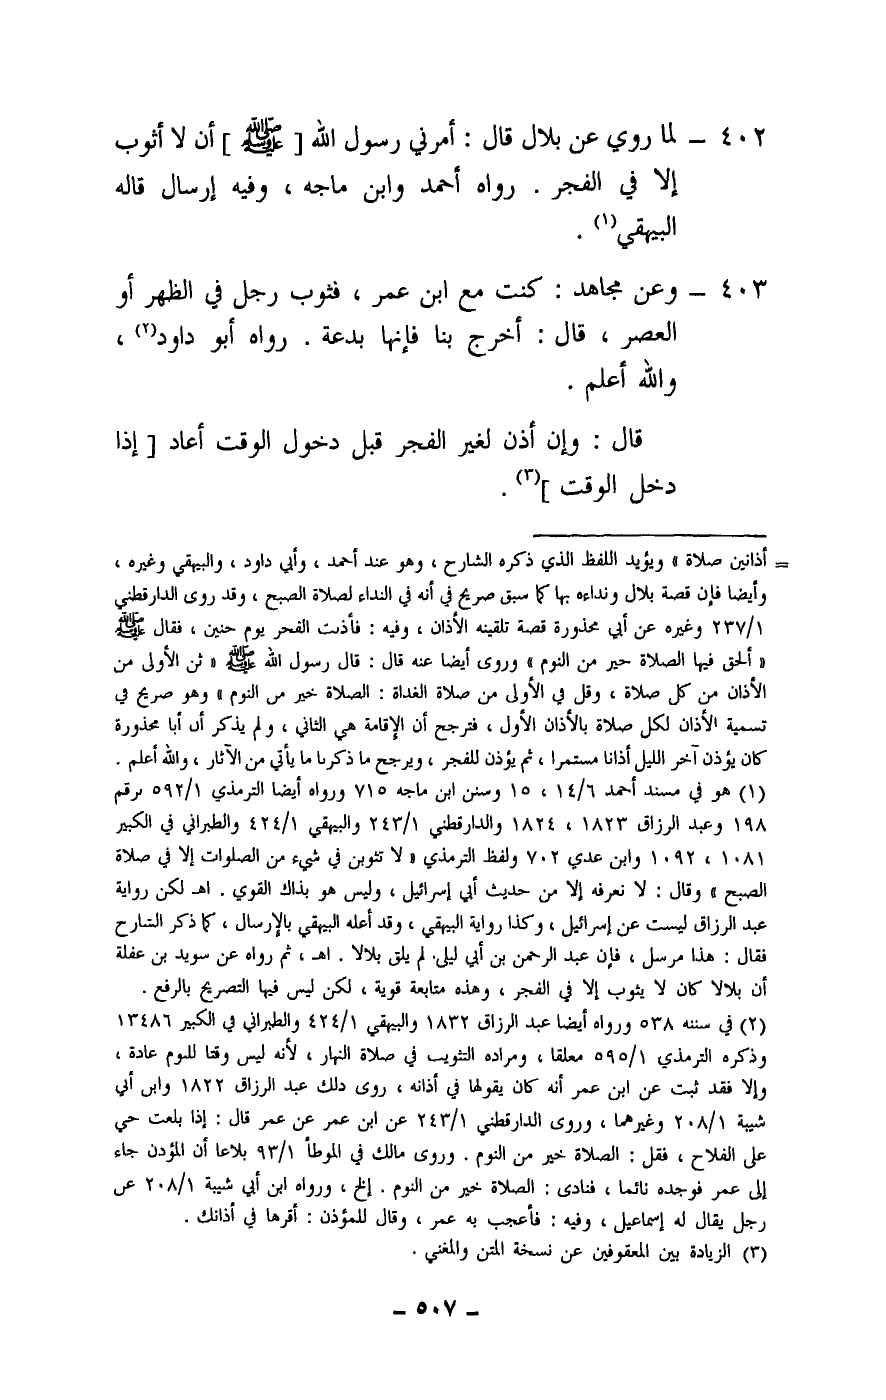 ٤٠٢ – لما روي عن بلال قال : أمرني رسول الله [ ﷺ ] أن لا أثوب
إلا في الفجر . رواه أحمد وابن ماجه ، وفيه إرسال قاله
البيهقي(١) .
٤٠٣ – وعن مجاهد : كنت مع ابن عمر ، فثوب رجل في الظهر أو
العصر ، قال : أخرج بنا فإنها بدعة . رواه أبو داود(٢) ،
والله أعلم .
قال : وإن أذن لغير الفجر قبل دخول الوقت أعاد [ إذا
دخل الوقت ](٣) .
= أذانين صلاة » ويؤيد اللفظ الذي ذكره الشارح ، وهو عند أحمد ، وأبي داود ، والبيهقي وغيره ،
وأيضا فإن قصة بلال ونداءه بها كما سبق صريح في أنه في النداء لصلاة الصبح ، وقد روى الدارقطني
٢٣٧/١ وغيره عن أبي محذورة قصة تلقينه الأذان ، وفيه : فأذنت الفجر يوم حنين ، فقال ﷺ
« ألحق فيها الصلاة خير من النوم » وروى أيضا عنه قال : قال رسول الله ﷺ « ثن الأولى من
الأذان من كل صلاة ، وقل في الأولى من صلاة الغداة : الصلاة خير من النوم » وهو صريح في
تسمية الأذان لكل صلاة بالأذان الأول ، فترجح أن الإقامة هي الثاني ، ولم يذكر أن أبا محذورة
كان يؤذن آخر الليل أذانا مستمرا ، ثم يؤذن للفجر ، ويرجح ما ذكرنا ما يأتي من الآثار ، والله أعلم .
(١) هو في مسند أحمد ١٤/٦ ، ١٥ وسنن ابن ماجه ٧١٥ ورواه أيضا الترمذي ٥٩٢/١ برقم
١٩٨ وعبد الرزاق ١٨٢٣ ، ١٨٢٤ والدارقطني ٢٤٣/١ والبيهقي ٤٢٤/١ والطبراني في الكبير
١٠٨١ ، ١٠٩٢ وابن عدي ٧٠٢ ولفظ الترمذي « لا تثوبن في شيء من الصلوات إلا في صلاة
الصبح » وقال : لا نعرفه إلا من حديث أبي إسرائيل ، وليس هو بذاك القوي . اهـ لكن رواية
عبد الرزاق ليست عن إسرائيل ، وكذا رواية البيهقي ، وقد أعله البيهقي بالإرسال ، كما ذكر الشارح
فقال : هذا مرسل ، فإن عبد الرحمن بن أبي ليلى. لم يلق بلالا . اهـ ، ثم رواه عن سويد بن غفلة
أن بلالا كان لا يثوب إلا في الفجر ، وهذه متابعة قوية ، لكن ليس فيها التصريح بالرفع .
(٢) في سننه ٥٣٨ ورواه أيضا عبد الرزاق ١٨٣٢ والبيهقي ٤٢٤/١ والطبراني في الكبير ١٣٤٨٦
وذكره الترمذي ٥٩٥/١ معلقا ، ومراده التثويب في صلاة النهار ، لأنه ليس وقتا للنوم عادة ،
وإلا فقد ثبت عن ابن عمر أنه كان يقولها في أذانه ، روى ذلك عبد الرزاق ١٨٢٢ وابن أبي
شيبة ٢٠٨/١ وغيرهما ، وروى الدارقطني ٢٤٣/١ عن ابن عمر عن عمر قال : إذا بلغت حي
على الفلاح ، فقل : الصلاة خير من النوم . وروى مالك في الموطأ ٩٣/١ بلاغا أن المؤذن جاء
إلى عمر فوجده نائما ، فنادى : الصلاة خير من النوم . إلخ ، ورواه ابن أبي شيبة ٢٠٨/١ عن
رجل يقال له إسماعيل ، وفيه : فأعجب به عمر ، وقال للمؤذن : أقرها في أذانك .
(٣) الزيادة بين المعقوفين عن نسخة المتن والمغني .
– ٥٠٧ –